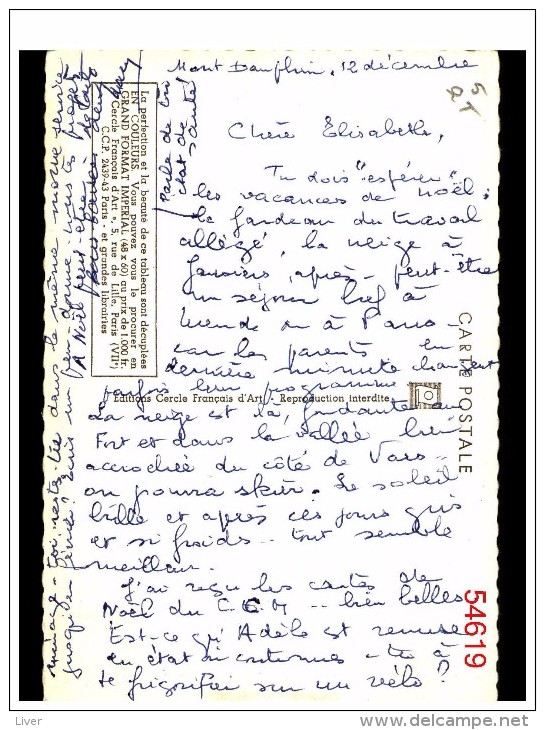 Mont Dauphin, 12 décembre
Chère Elisabeth,
Tu dois "espérer"
les vacances de noël :
le fardeau du travail
allégé, la neige à
après - peut-être
un séjour bref à
ou à Paris
car les parents en
dernière minute changent
parfois leur programme
La neige est là, fondante au
Fort et dans la vallée bien
accrochée du côté de Vars -
on pourra skier. Le soleil
brille et après ces jours gris
et si froids - tout semble
meilleur.
J'ai reçu les cartes de
Noël du C.C.M -- bien belles
Est-ce qu'Adèle est remise
en état ou continues-tu à
te frigorifier sur un vélo ?
ménage - toi reste-tu dans le même morne service
jusqu'en février? Ecris un peu - donne-nous tes projets
A Noël peut-être
Parle de ton
état de
santé
La perfection et la beauté de ce tableau sont décuplées
EN COULEURS. Vous pouvez vous le procurer en
GRAND FORMAT IMPERIAL (48 x 60) au prix de 1.000 fr.
"Cercle Français d'Art", 5, rue de Lille, Paris (VIIe)
C.C.P. 2439-43 Paris - et grandes librairies
Editions Cercle Français d'Art - Reproduction interdite
CARTE POSTALE
54619
Liver
www.delcampe.net